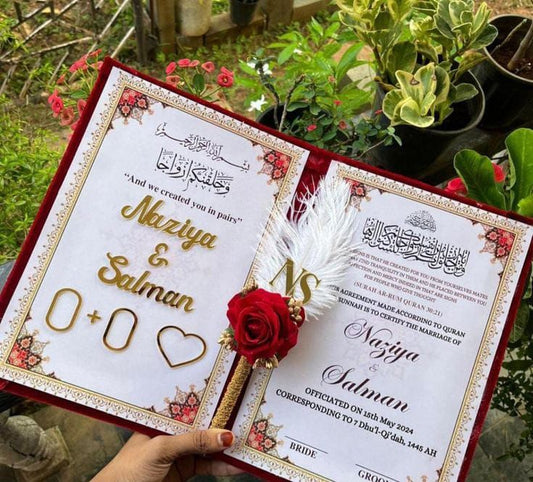 بسم الله الرحمن الرحيم
وخلقنكم ازواجا
"And we created you in pairs"
Naziya
&
Salman
0 + 0 ♡
NS
IS THAT HE CREATED FOR YOU FROM YOURSELVES MATES
MAY FIND TRANQUILITY IN THEM AND HE PLACED BETWEEN YOU
AFFECTION AND MERCY INDEED IN THAT ARE SIGNS
FOR PEOPLE WHO GIVE THOUGHT
(SURAH AR-RUM QURAN 30:21)
AGREEMENT MADE ACCORDING TO QURAN
SUNNAH IS TO CERTIFY THE MARRIAGE OF
Naziya
&
Salman
OFFICIATED ON 15th May 2024
CORRESPONDING TO 7 Dhu'l-Qi'dah, 1445 AH
BRIDE
GROOM